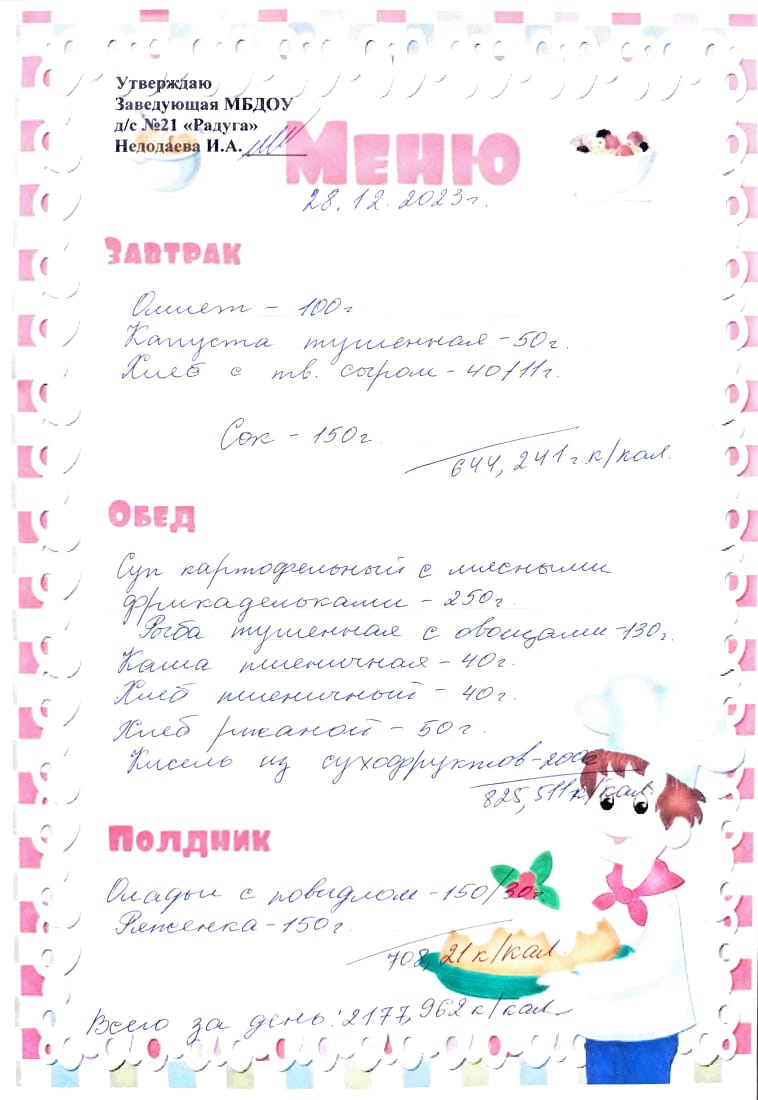 Утверждаю
Заведующая МБДОУ
д/с №21 «Радуга»
Недодаева И.А.
Меню
28.12.2023г.
Завтрак
Омлет - 100г.
Капуста тушенная - 50г.
Хлеб с тв. сыром - 40/11г.
Сок - 150г.
644,241г.к/кал.
Обед
Суп картофельный с мясными
фрикадельками - 250г.
Рыба тушенная с овощами - 130г.
Каша пшеничная - 40г.
Хлеб пшеничный - 40г.
Хлеб ржаной - 50г.
Кисель из сухофруктов - 200г
825,511к/кал.
Полдник
Оладьи с повидлом - 150/30г.
Ряженка - 150г.
708,21к/кал.
Всего за день: 2177,962к/кал